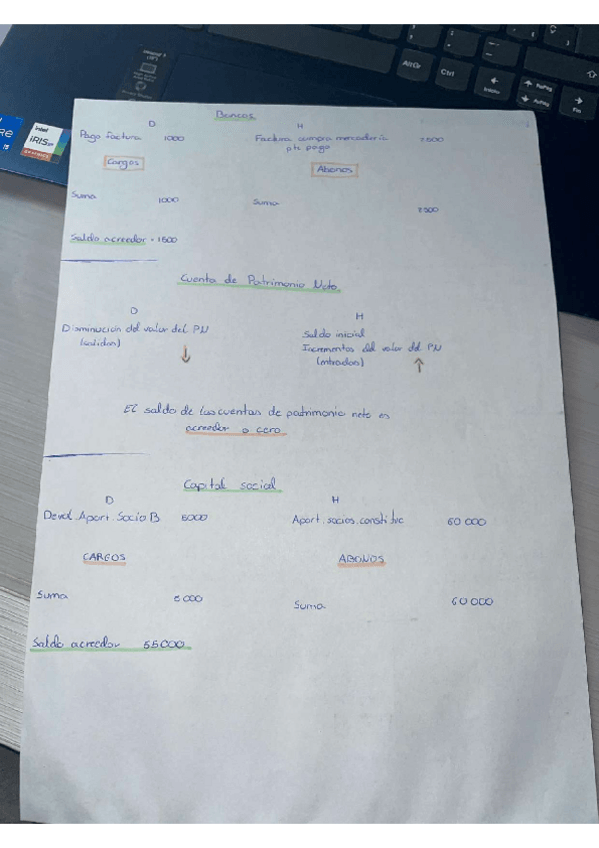 AltGr
Ctrl
Inicio
RePag
AvPag
Fin
intel
iRIS xe
GRAPHICS
Bancos
D H
Pago factura 1000 Factura compra mercadería 2500
pte pago
Cargos Abonos
Suma 1000 Suma
2500
Saldo acreedor = 1500
Cuenta de Patrimonio Neto
D H
Disminución del valor del PN
(salidas)
Saldo inicial
Incrementos del valor del PN
(entradas)
El saldo de las cuentas de patrimonio neto es
acreedor o cero
Capital social
D H
Devol. Aport. Socio B 5000 Aport. socios. constitve 60 000
CARGOS ABONOS
Suma 5 000 Suma 60 000
Saldo acreedor 55 000